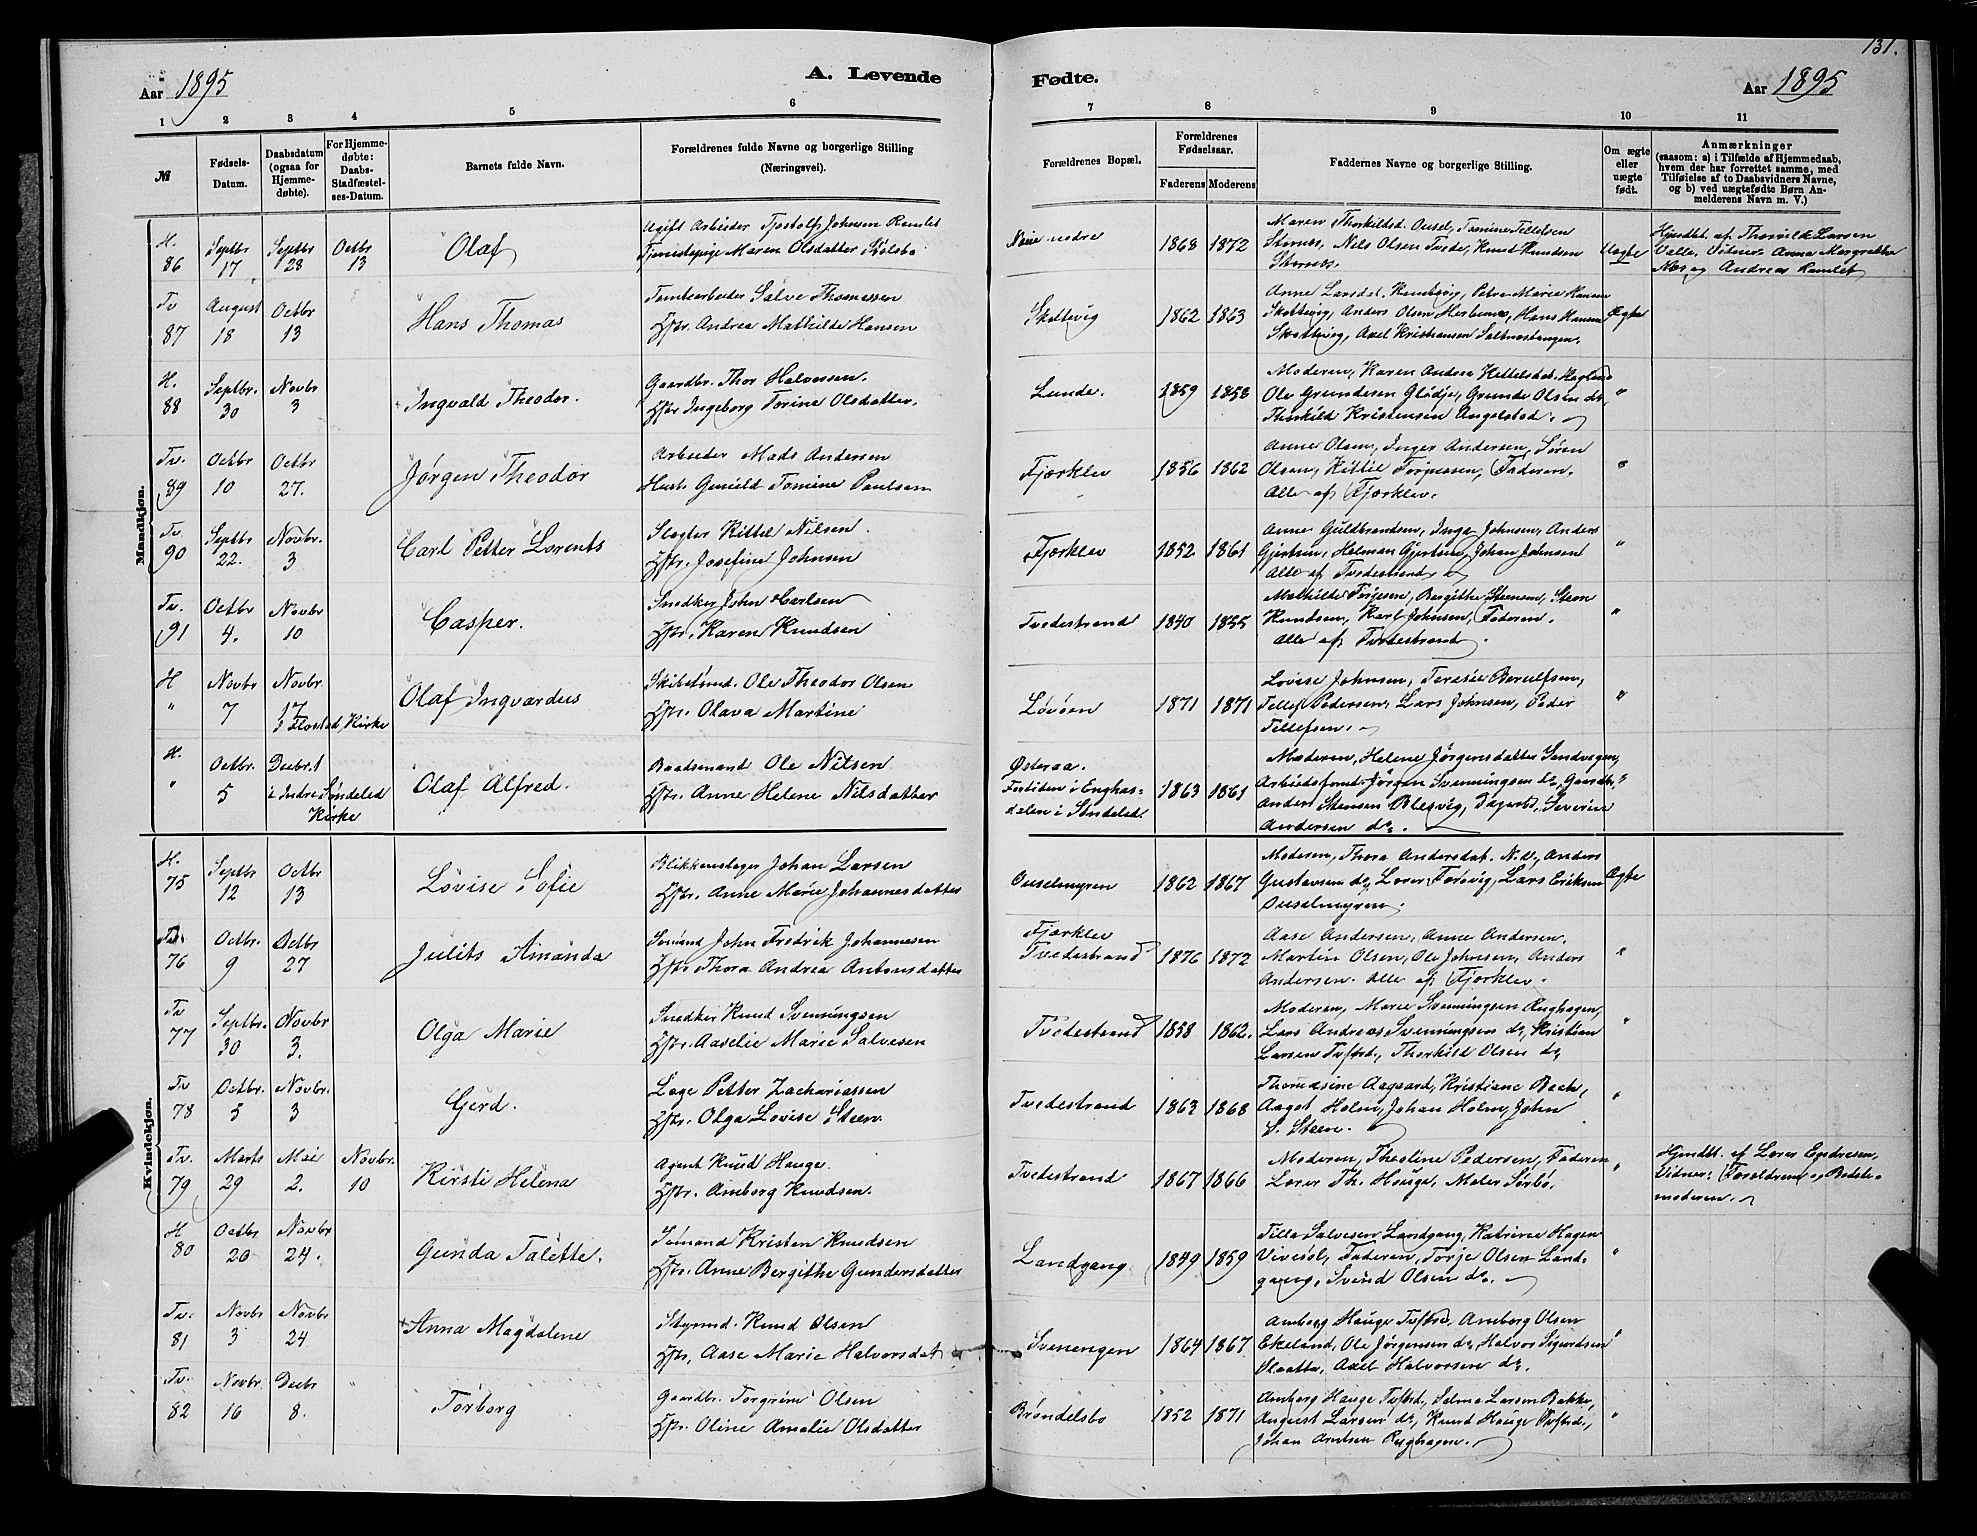 131.
Aar 1895
A. Levende
Fødte.
Aar 1895
1 2 3 4 5 6 7 8 9 10 11
№
Fødsels-
Datum.
Daabsdatum
(ogsaa for
Hjemme-
døbte).
For Hjemme-
døbte:
Daabs-
Stadfæstel-
ses-Datum.
Barnets fulde Navn.
Forældrenes fulde Navne og borgerlige Stilling
(Næringsvei).
Forældrenes Bopæl.
Forældrenes
Fødselsaar.
Faderens Moderens
Faddernes Navne og borgerlige Stilling.
Om ægte
eller
uægte
født.
Anmærkninger
(saasom: a) i Tilfælde af Hjemmedaab,
hvem der har forrettet samme, med
Tilføielse af to Daabsvidners Navne,
og b) ved uægtefødte Børn An-
melderens Navn m. V.)
Mandkjøn.
H. 86 Septbr 17 Septbr 28 Octbr 13 Olaf
Ugift Arbeider Tjostolf Johnsen Ramlet
Tjenestepige Maren Olsdatter
nedre 1868 1872
Maren Thorkildsd. Ousel, Tomine Tellefsen
Stornes, Nels Olsen Tvede, Knud Knudsen
Stornes.
Uægte
Hjmdbt. af Thorvild Larsen
Valle. Vidner Anna Margrethe
Næs og Andreas Ramlet
Tv 87 August 18 Octbr 13 Hans Thomas
Tomtearbeider Salve Thomassen
Hstr. Andrea Mathilde Hansen
Skottevig 1862 1863
Anne Larsdat. Petra Marie Hansen
Skottevig, Anders Olsen Hans Hansen
Skottevig, Axel Kristiansen
Ægte
H. 88 Septbr. 30 Novbr 3 Ingvald Theodor.
Gaardbr. Thor Halvorsen.
Hstr Ingeborg Torine Olsdatter.
Lunde. 1859 1858
Moderen, Karen Andrea Kettelsdat. Hagland
Ole Grundesen Glødje, Grunde Olsen do,
Thorkild Kristensen Angelstad.
"
Tv. 89 Octbr 10 Octbr 27. Jørgen Theodor
Arbeider Mads Andersen
Hust. Gunild Tomine Paulsen
Fjærklev 1856 1862
Anne Olsen, Inger Andersen, Søren
Olsen, Kittil Torgersen, Faderen.
Alle af Fjærklev.
"
Tv 90 Septbr 22. Novbr. 3 Carl Petter Lorents
Slagter Kittel Nilsen.
Hstr. Josefine Johnsen
Fjærklev 1852 1861
Anne Guldbrandsen, Inga Johnsen, Anders
Gjertsen, Helman Gjertsen, Johan Johnsen
Alle af Tvedestrand.
"
Tv. 91 Octbr 4. Novbr 10 Casper.
Snedker John Carlsen
Hstr. Karen Knudsen
Tvedestrand 1840 1855
Mathilde Torgesen, Bergithe Steensen, Steen
Knudsen, Karl Johnsen, Faderen.
Alle af Tvedestrand.
"
H " Novbr 7 Novbr. 17 i Flosta Kirke Olaf Ingvardus
Skibstømd. Ole Theodor Olsen
Hstr. Olava Martine
Løvøen 1871 1871
Lovise Johnsen, Teresie Berulfsen,
Tellef Pedersen, Lars Johnsen, Peder
Tellefsen.
"
H. " Octbr. 5 Decbr. 1 i Indre Søndeled Kirke Olaf Alfred.
Baadsmand Ole Nilsen
Hstr. Anne Helene Nilsdatter
Østeraa.
Fortiden i Enghas-
dalen i Søndeled. 1863 1861
Moderen, Helene Jørgensdatter Sandvigen,
Arbeidsfmd. Jørgen Svenningsen do, Gaardbr.
Anders Stensen Blegvig, Severin
Andersen do.
"
Kvindekjøn.
H. 75 Septbr 12 Octbr 13 Lovise Sofie
Blikkenslager Johan Larsen
Hstr. Anne Marie Johannesdatter
Ouselmyren 1862 1867
Moderen, Thora Andersdat. N. v., Anders
Gustavsen do, Lars Eriksen
Ouselmyren.
Ægte
Tv. 76 Octbr. 9 Octbr 27 Julits Amanda
Sømand John Fredrik Johannesen
Hstr Thora Andrea Antonsdatter
Fjærklev
Tvedestrand 1876 1872
Aase Andersen, Anne Andersen.
Martin Olsen, Ole Johnsen, Anders
Andersen. Alle af Fjærklev.
"
Tv 77 Septbr. 30 Novbr 3. Olga Marie
Snedker Knud Svenningsen
Hstr. Aaselie Marie Salvesen
Tvedestrand 1858 1862.
Moderen, Marie Svenningsen Rughagen,
Lars Andreas Svenningsen do, Kristian
Larsen Tvdstrd., Thorkild Olsen do
"
Tv 78 Octbr. 5 Novbr. 3 Gerd.
Læge Petter Zachariassen
Hstr. Olga Lovise Steen
Tvedestrand 1863 1868
Thomassine Aagaard, Kristiane Bach,
Aagot Holm, Johan Holm, John
S. Steen.
"
Tv. 79 Marts 29 Mai 2. Novbr. 10 Kirsti Helena
Agent Knud Hauge.
Hstr. Amborg Knudsen.
Tvedestrand 1867 1866
Moderen, Theoline Pedersen, Faderen
Lorer Th. Hauge, Maler Sørbø.
"
Hjmdbt. af Lærer Endresen
Vidner: Forældrene og Bedste-
moderen.
H 80 Octbr 20 Novbr 24. Gunda Talette.
Sømand Kristen Knudsen
Hstr. Anne Bergithe Gundersdatter
Landgang 1849 1859
Tilla Salvesen Landgang, Katrine Hagen
Vivesøl, Faderen, Torje Olsen Land-
gang, Svend Olsen do.
"
Tv. 81 Novbr 3 Novbr 24 Anna Magdalene
Styrmd. Knud Olsen
Hstr, Aase Marie Halvorsdat
Svenengen 1864 1867
Amborg Hauge Tvdstrd, Amborg Olsen
Ekeland, Ole Jørgensen do, Halvor Sigurdsen
Slaatta, Axel Halvorsen do.
"
Tv. 82 Novbr. 16 Decbr 8. Torborg
Gaardbr. Torgrim Olsen
Hstr. Oline Amalie Olsdatter
Brøndelsbo 1852 1871
Amborg Hauge Tvdstrd., Selma Larsen Bakke,
August Larsen do, Knud Hauge Tvdstrd.,
Johan Arntsen Rughagen.
"